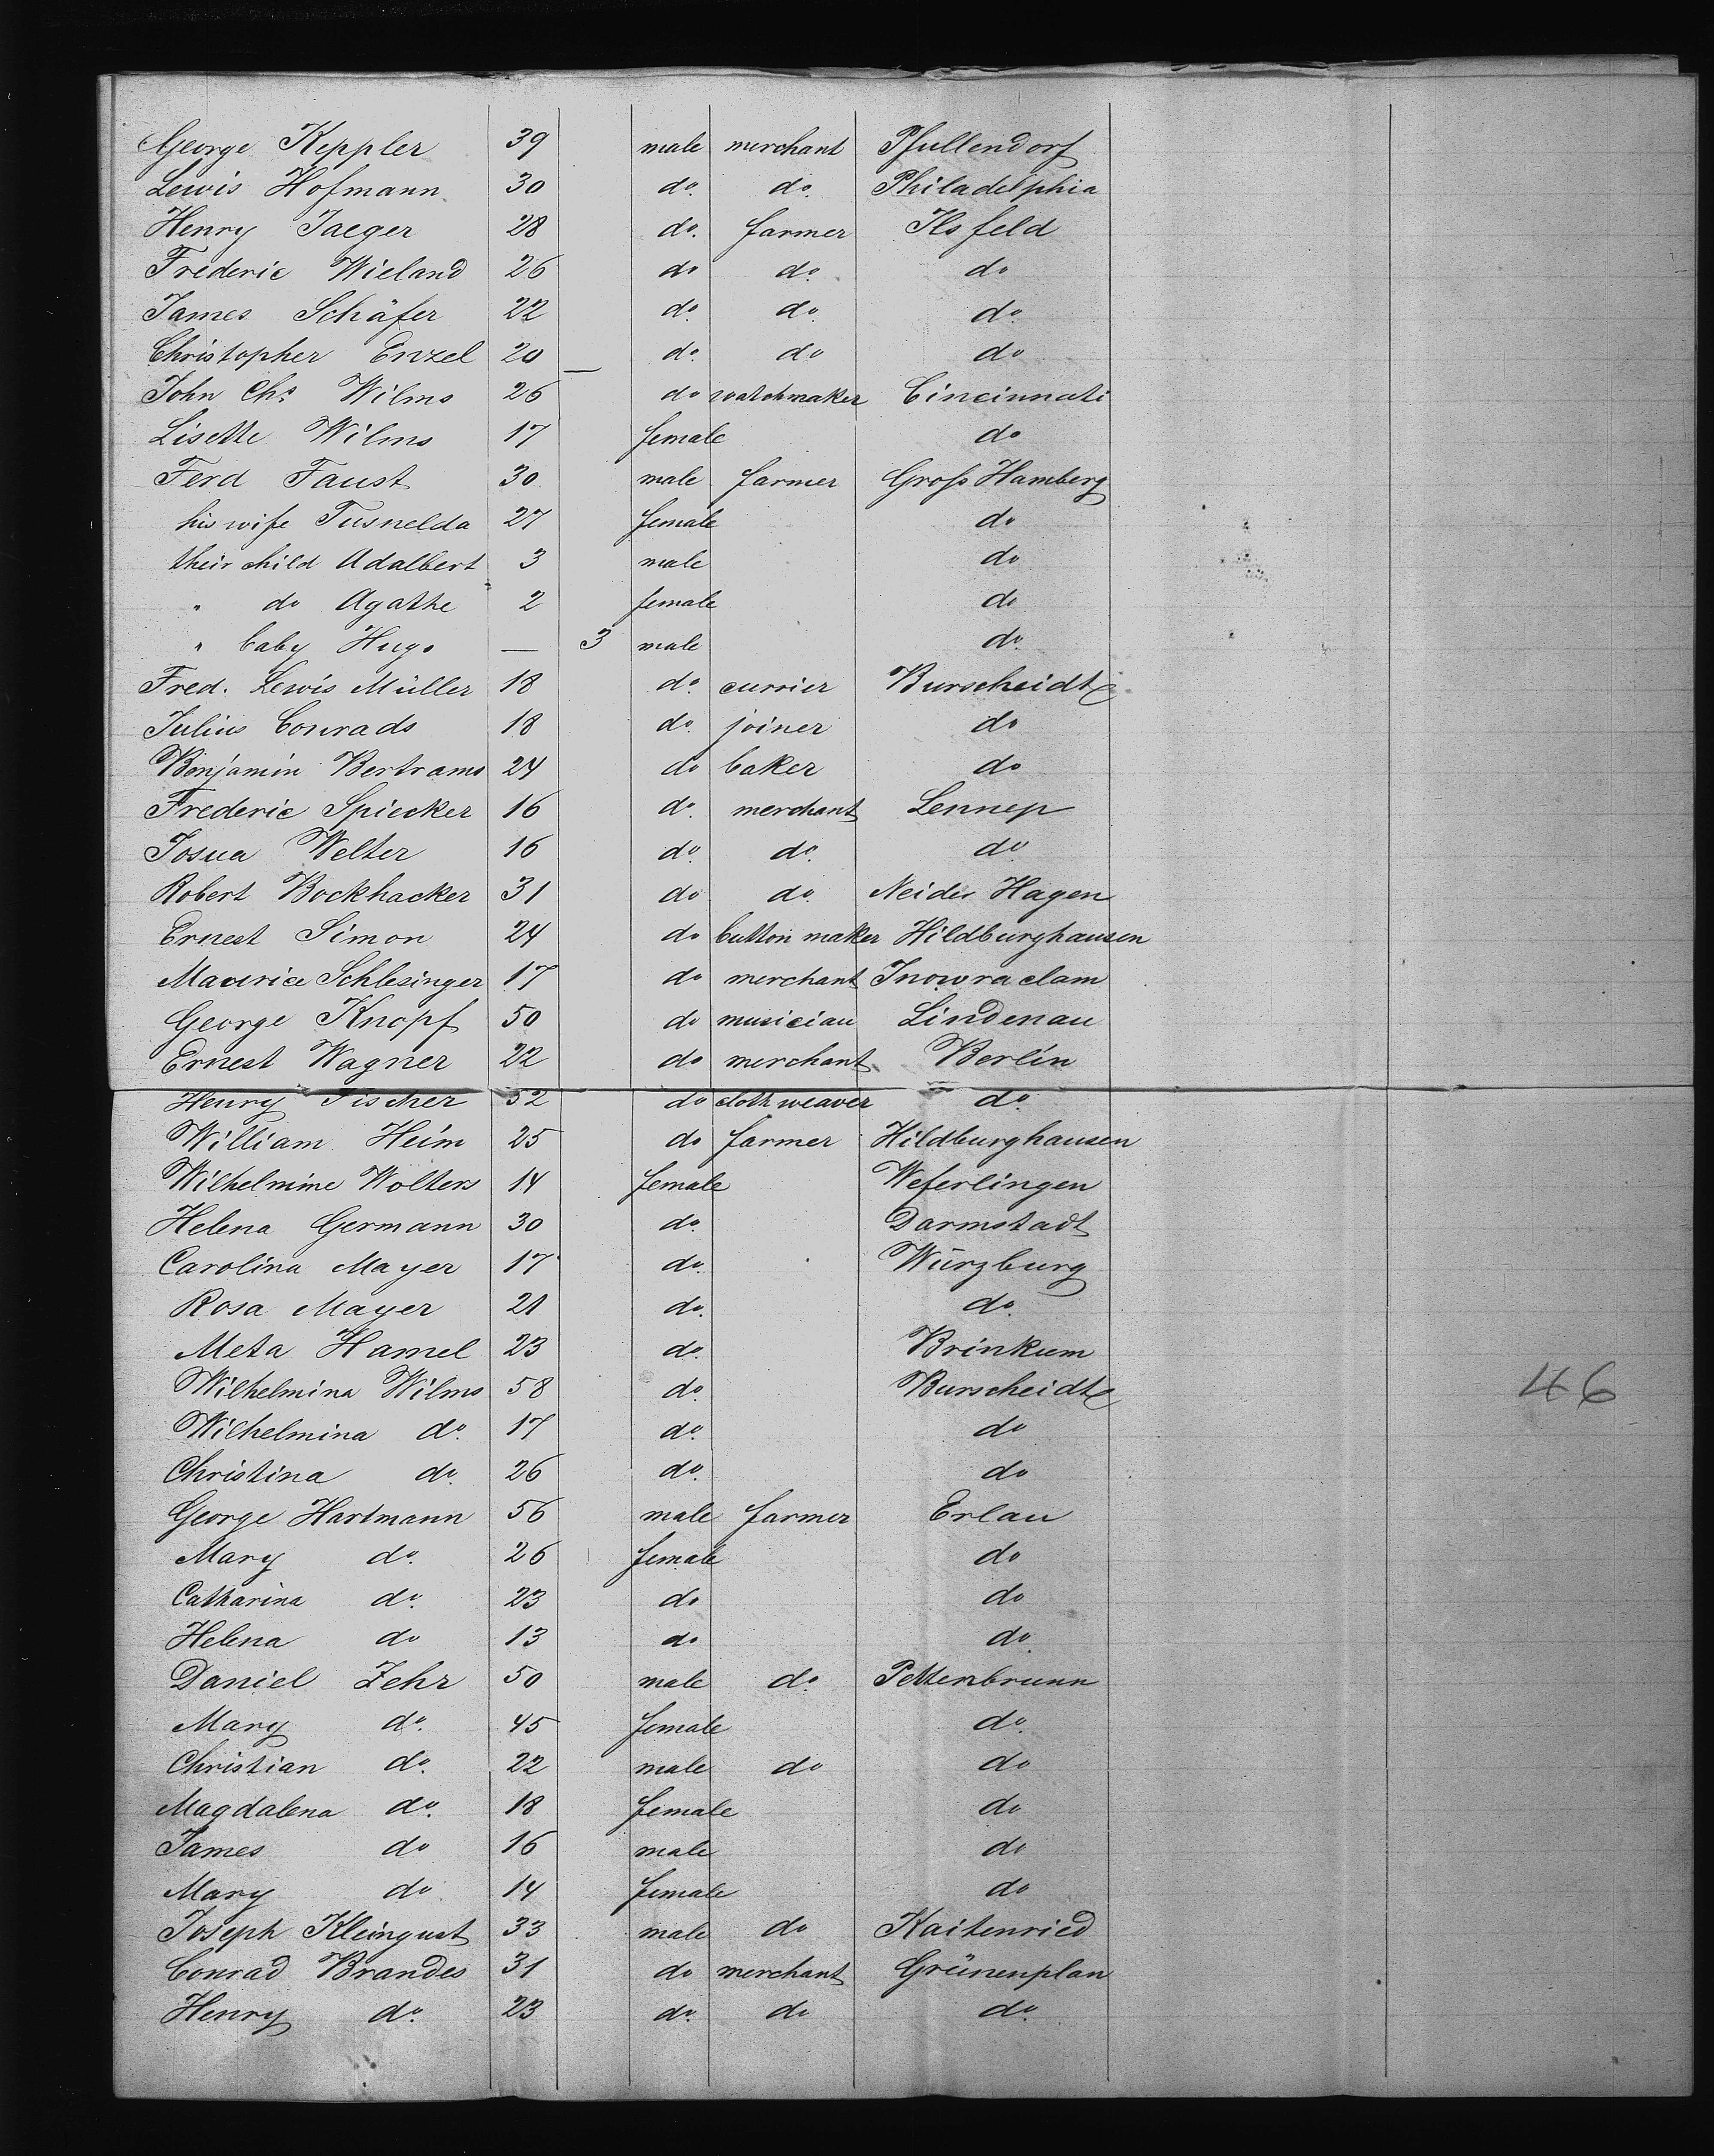 George Keppler 39 male merchant Pfullendorf
Lewis Hofmann 30 do. do. Philadelphia
Henry Jaeger 28 do. farmer Ilsfeld
Frederic Wieland 26 do do. do
James Schäfer 22 do. do. do.
Christopher Enzel 20 do. do do
John Chs. Wilms 26 do watchmaker Cincinnati
Lisette Wilms 17 female do
Ferd Faust 30 male farmer Gross Hamberg
his wife Tusnelda 27 female do
their child Adalbert 3 male do
" do Agathe 2 female do
" baby Hugo — 3 male do.
Fred. Lewis Müller 18 do. currier Burscheidt
Julius Conrads 18 do. joiner do
Benjamin Bertrams 24 do baker do
Frederic Spiecker 16 do. merchant Lennep
Josua Welter 16 do. do. do.
Robert Bockhacker 31 do do. Neider Hagen
Ernest Simon 24 do button maker Hildburghausen
Maurice Schlesinger 17 do merchant Inowraclam
George Knopf 50 do musician Lindenau
Ernest Wagner 22 do merchant Berlin
Henry Fischer 52 do cloth weaver do.
William Heim 25 do farmer Hildburghausen
Wilhelmine Wolters 14 female Weferlingen
Helena Germann 30 do. Darmstadt
Carolina Mayer 17 do. Würzburg
Rosa Mayer 21 do. do.
Meta Hamel 23 do. Brinkum
Wilhelmina Wilms 58 do. Burscheidt
46
Wilhelmina do. 17 do. do
Christina do. 26 do. do
George Hartmann 56 male farmer Erlau
Mary do. 26 female do
Catharina do. 23 do do
Helena do 13 do do.
Daniel Zehr 50 male do. Pettenbrunn
Mary do. 45 female do.
Christian do. 22 male do do
Magdalena do. 18 female do
James do 16 male do
Mary do 14 female do
Joseph Kleingust 33 male do Kaitenried
Conrad Brandes 31 do merchant Grünenplan
Henry do. 23 do. do do.